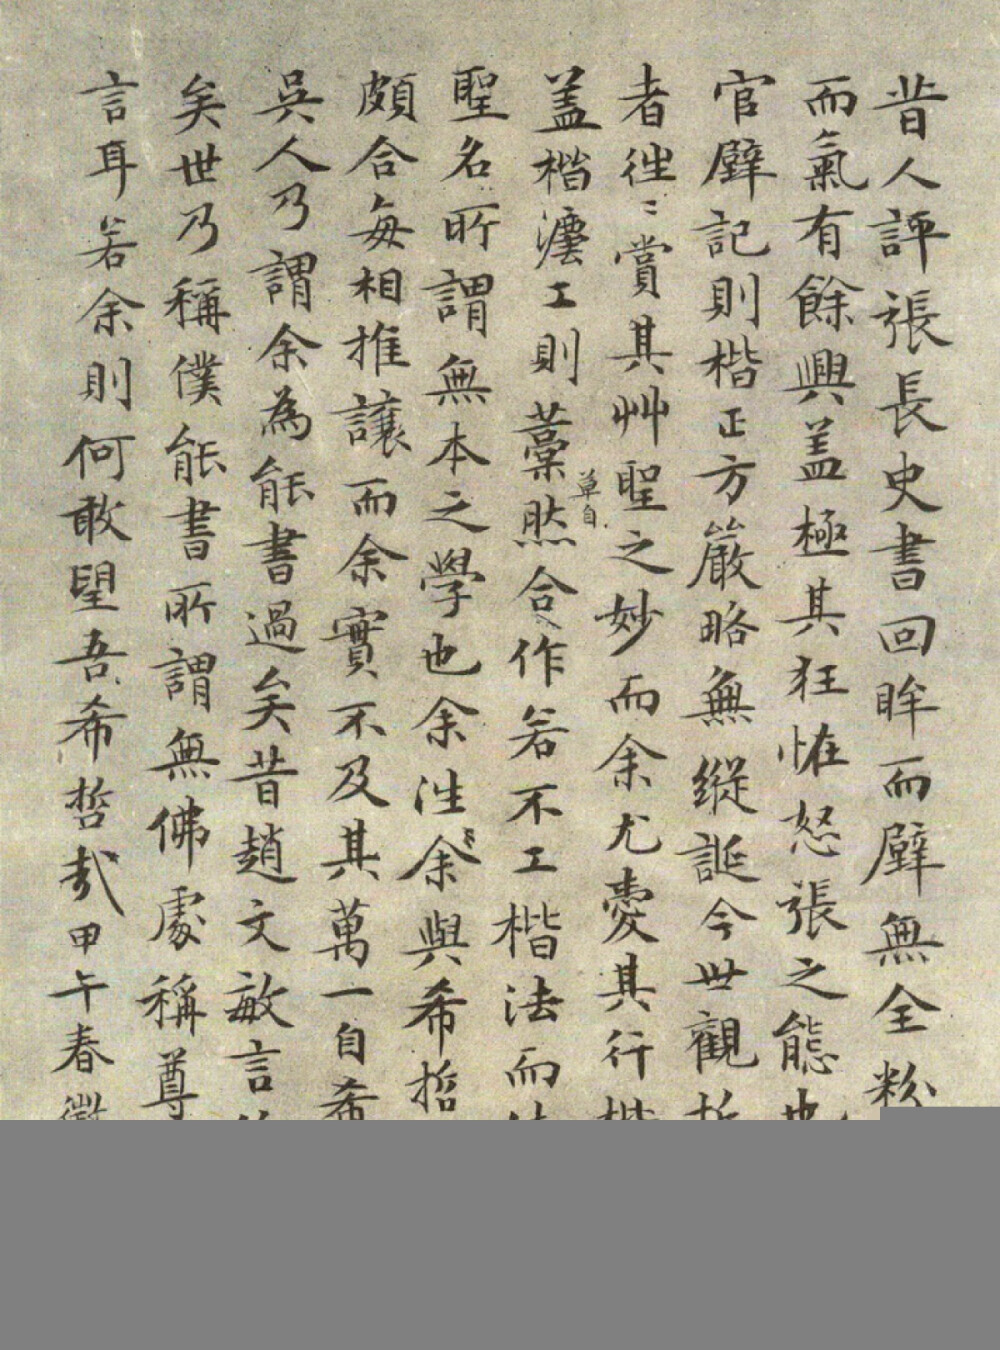 昔人評張長史書回眸而壁無全粉
而氣有餘興盖極其狂恠怒張之態
官壁記則楷正方嚴略無縱誕今世觀
者徃〻賞其艸聖之妙而余尤愛其行
盖楷灋工則藳草自然合作若不工楷法而
聖名所謂無本之學也余徃余〻與希哲
頗合每相推讓而余實不及其萬一自希
吳人乃謂余為能書過矣昔趙文敏言
矣世乃稱僕能書所謂無佛處稱尊
言耳若余則何敢望吾希哲哉甲午春徵